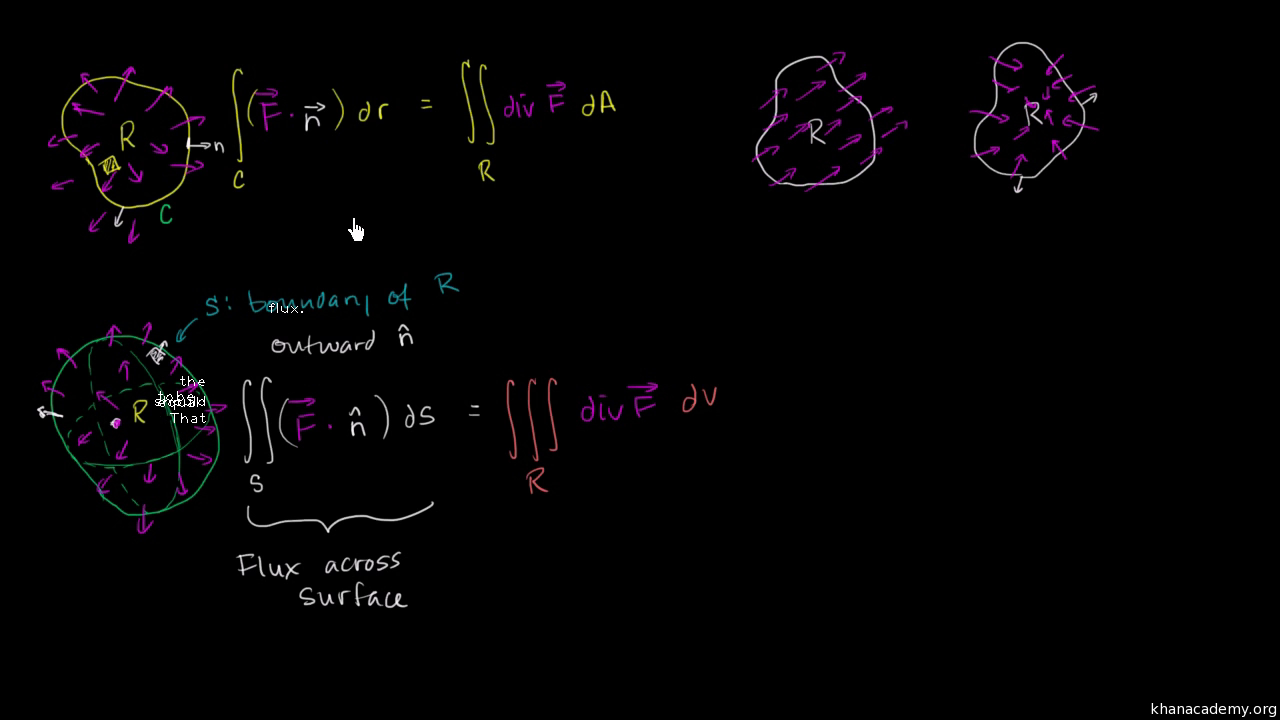 R
n
C
∫_C (F⃗ · n⃗) dr = ∬_R div F⃗ dA
R
R
S: boundary of R
flux.
outward n̂
R
the
That
∬_S (F⃗ · n̂) dS = ∭_R div F⃗ dV
Flux across
surface
khanacademy.org